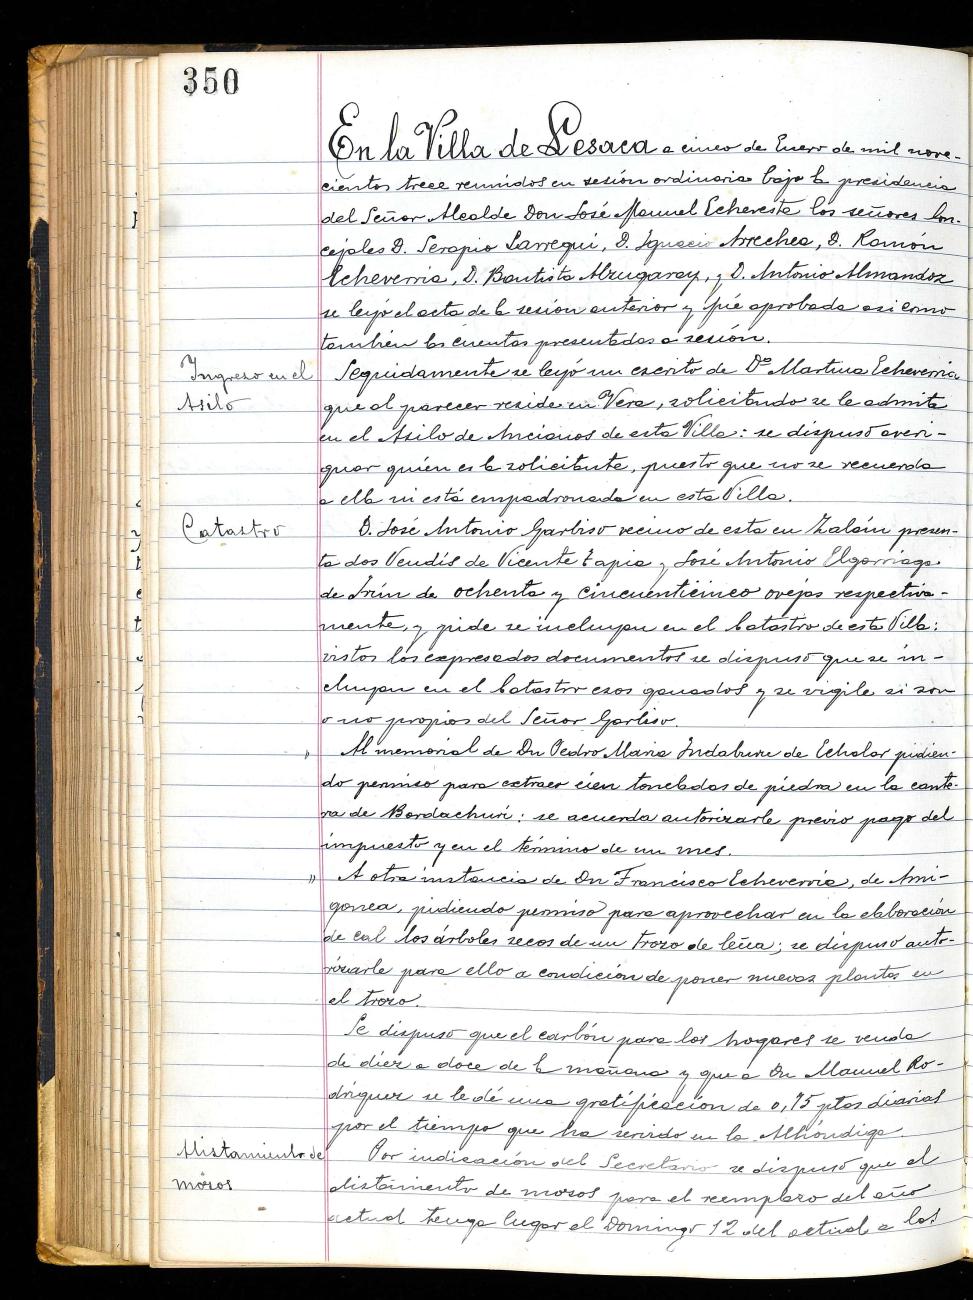 350
En la Villa de Lesaca a cinco de Enero de mil nove-
cientos trece reunidos en sesión ordinaria bajo la presidencia
del Señor Alcalde Don José Manuel Echeveste los señores Con-
cejales D. Serapio Larregui, D. Ignacio Arrechea, D. Ramón
Echeverria, D. Bautista Alzugaray, y D. Antonio Almandoz
se leyó el acta de la sesión anterior y fué aprobada asi como
también las cuentas presentadas a sesión.
Ingreso en el
Asilo
Seguidamente se leyó un escrito de Dª Martina Echeverria
que al parecer reside en Vera, solicitando se le admita
en el Asilo de Ancianos de esta Villa: se dispuso averi-
guar quién es la solicitante, puesto que no se recuerda
a ella ni está empadronada en esta Villa.
Catastro
D. José Antonio Garbiso vecino de esta en Zalain presen-
ta dos Vendís de Vicente Tapia y José Antonio Elgorriaga
de Irún de ochenta y cincuenticinco ovejas respectiva-
mente, y pide se incluyan en el Catastro de esta Villa:
vistos los expresados documentos se dispuso que se in-
cluyan en el Catastro esos ganados y se vigile si son
o no propios del Señor Garbiso.
" Al memorial de Dn Pedro Maria Indaburu de Echalar pidien-
do permiso para extraer cien toneladas de piedra en la cante-
ra de Bordachuri: se acuerda autorizarle previo pago del
impuesto y en el término de un mes.
" A otra instancia de Dn Francisco Echeverria, de Ami-
gonea, pidiendo permiso para aprovechar en la elaboración
de cal los árboles secos de un trozo de leña; se dispuso auto-
rizarle para ello a condición de poner nuevas plantas en
el trozo.
Se dispuso que el carbón para los hogares se venda
de diez a doce de la mañana y que a Dn Manuel Ro-
dríguez se le dé una gratificación de 0,75 ptas diarias
por el tiempo que ha servido en la Alhóndiga.
Alistamiento de
mozos
Por indicación del Secretario se dispuso que el
alistamiento de mozos para el reemplazo del año
actual tenga lugar el Domingo 12 del actual a las